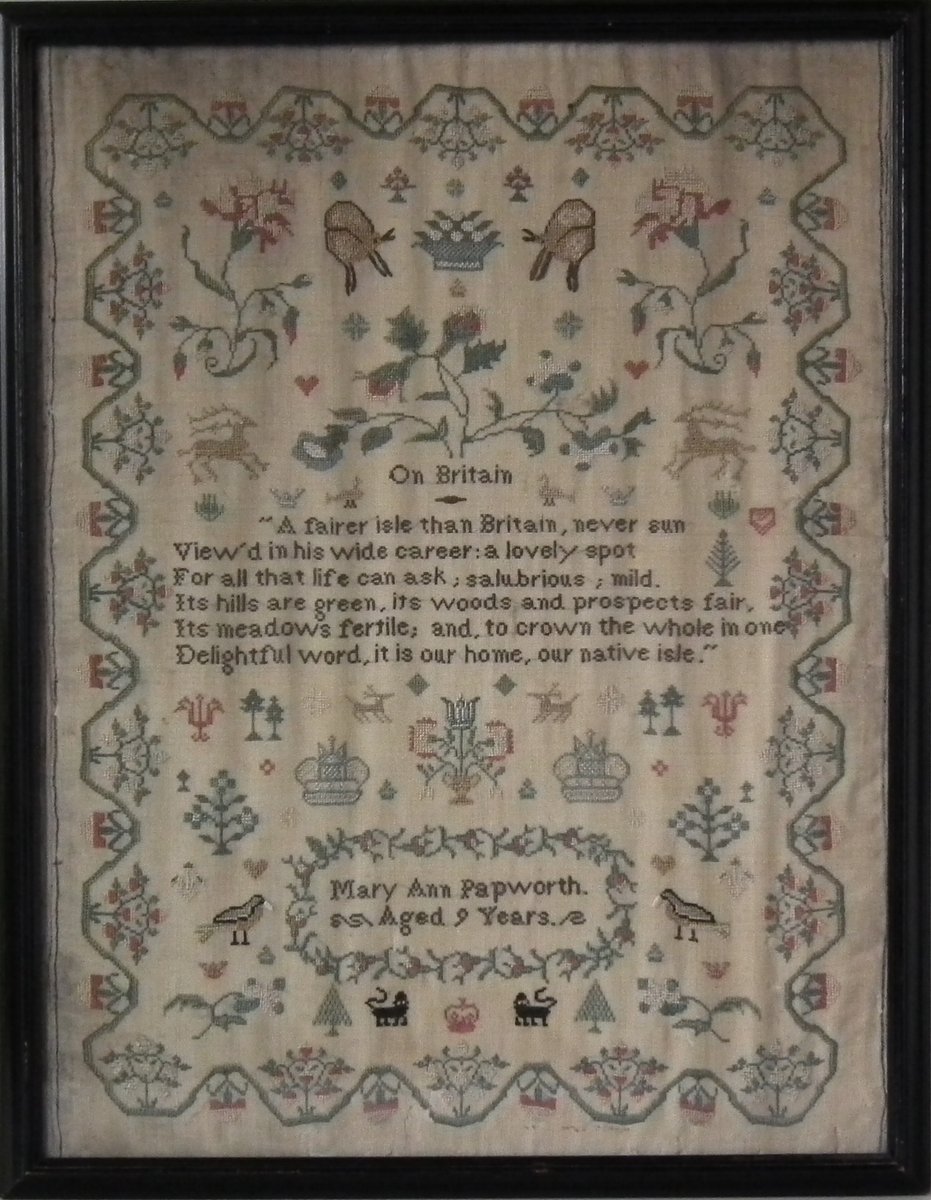 On Britain
"A fairer isle than Britain, never sun
View'd in his wide career: a lovely spot
For all that life can ask; salubrious; mild.
Its hills are green, its woods and prospects fair,
Its meadows fertile; and, to crown the whole in one
Delightful word, it is our home, our native isle."
Mary Ann Papworth.
Aged 9 Years.